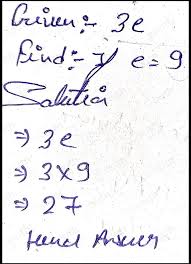 Given:- 3e
Find:- if e=9
Solution
⇒ 3e
⇒ 3x9
⇒ 27
Answer